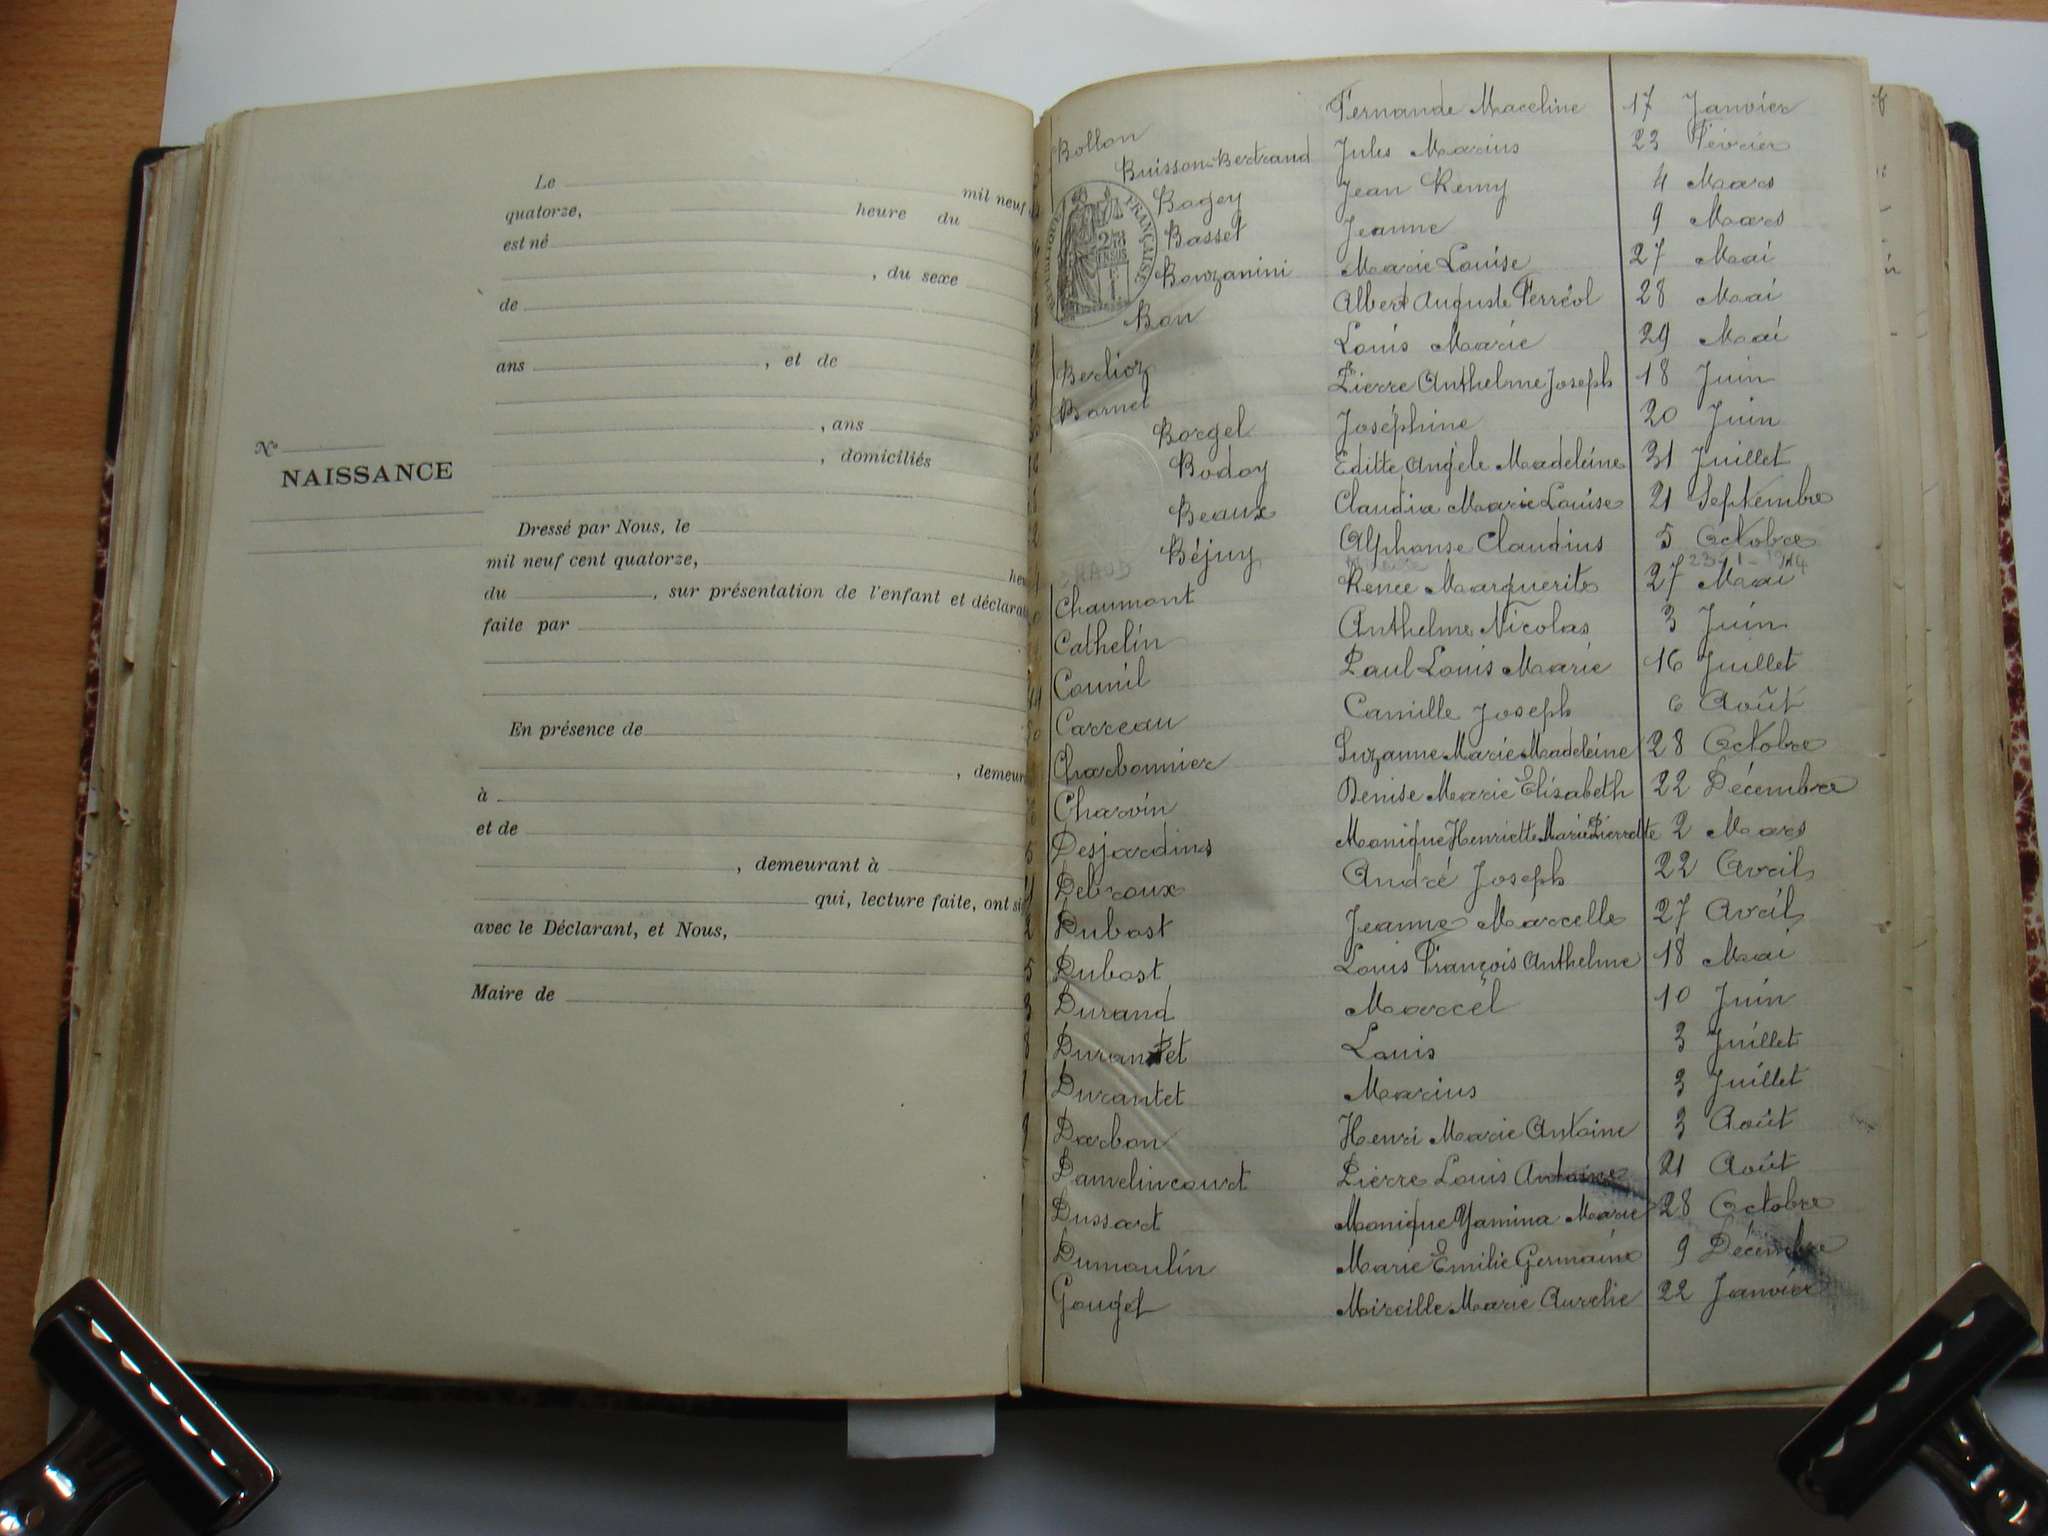 Le mil neuf
quatorze, heure du
est né
, du sexe
de
ans , et de
, ans
, domiciliés
N°
NAISSANCE
Dressé par Nous, le
mil neuf cent quatorze,
du , sur présentation de l'enfant et déclarat
faite par
En présence de
, demeur
à
et de
, demeurant à
qui, lecture faite, ont si
avec le Déclarant, et Nous,
Maire de
Bollon Fernande Maceline 17 Janvier
Buisson-Bertrand Jules Marius 23 Février
Bagey Jean Remy 4 Mars
Basset Jeanne 9 Mars
Bouzanini Marie Louise 27 Mai
Bon Albert Auguste Ferréol 28 Mai
Berlioz Louis Marie 29 Mai
Bornet Pierre Anthelme Joseph 18 Juin
Borgel Joséphine 20 Juin
Bodoy Editte Angèle Madeleine 31 Juillet
Beaux Claudia Marie Louise 21 Septembre
Béjuy Alphonse Claudius 5 Octobre
Chaumont Renée Marguerite 27 Mai
Cathelin Anthelme Nicolas 3 Juin
Counil Paul Louis Marie 16 Juillet
Carreau Camille Joseph 6 Août
Charbonnier Suzanne Marie Madeleine 28 Octobre
Charvin Denise Marie Elisabeth 22 Décembre
Desjardins Monique Henriette Marie Pierrette 2 Mars
Debroux André Joseph 22 Avril
Dubost Jeanne Marcelle 27 Avril
Dubost Louis François Anthelme 18 Mai
Durand Marcel 10 Juin
Durantet Louis 3 Juillet
Durantet Marius 3 Juillet
Darbon Henri Marie Antoine 3 Août
Damelincourt Pierre Louis Antoine 21 Août
Dussart Monique Yamina Marie 28 Octobre
Dumoulin Marie Emilie Germaine 9 Décembre
Gouget Mireille Marie Aurelie 22 Janvier